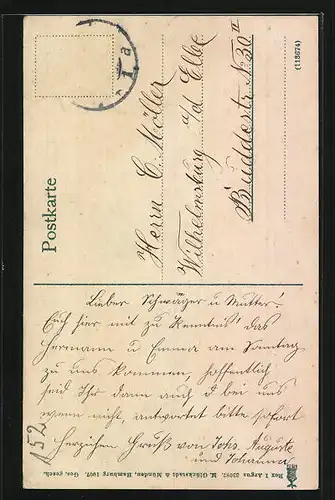 Postkarte
(118674)
Herrn C. Möller
Wilhelmsburg a/d Elbe
Buddestr N 30 II
Lieber Schwager u Mutter!
Euch hier mit zu Kenntnis das
Hermann u Emma am Sontag
zu uns kommen, hoffentlich
seid Ihr dann auch bei uns
wenn nicht, antwortet bitte sofort
Herzichen Gruß von Johs. Auguste
und Johanna
152
Ross I. Argus 3367. M. Glückstadt & Münden, Hamburg 1907. Ges. gesch.